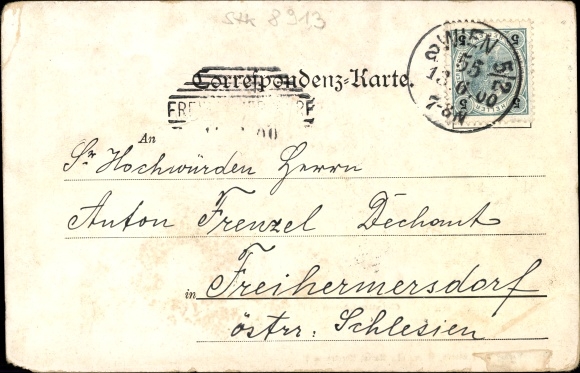 Stk 8913
Correspondenz-Karte.
WIEN 5/2
55
An
Sr Hochwürden Herrn
Anton Frenzel Dechant
in Freihermersdorf
östrr: Schlesien